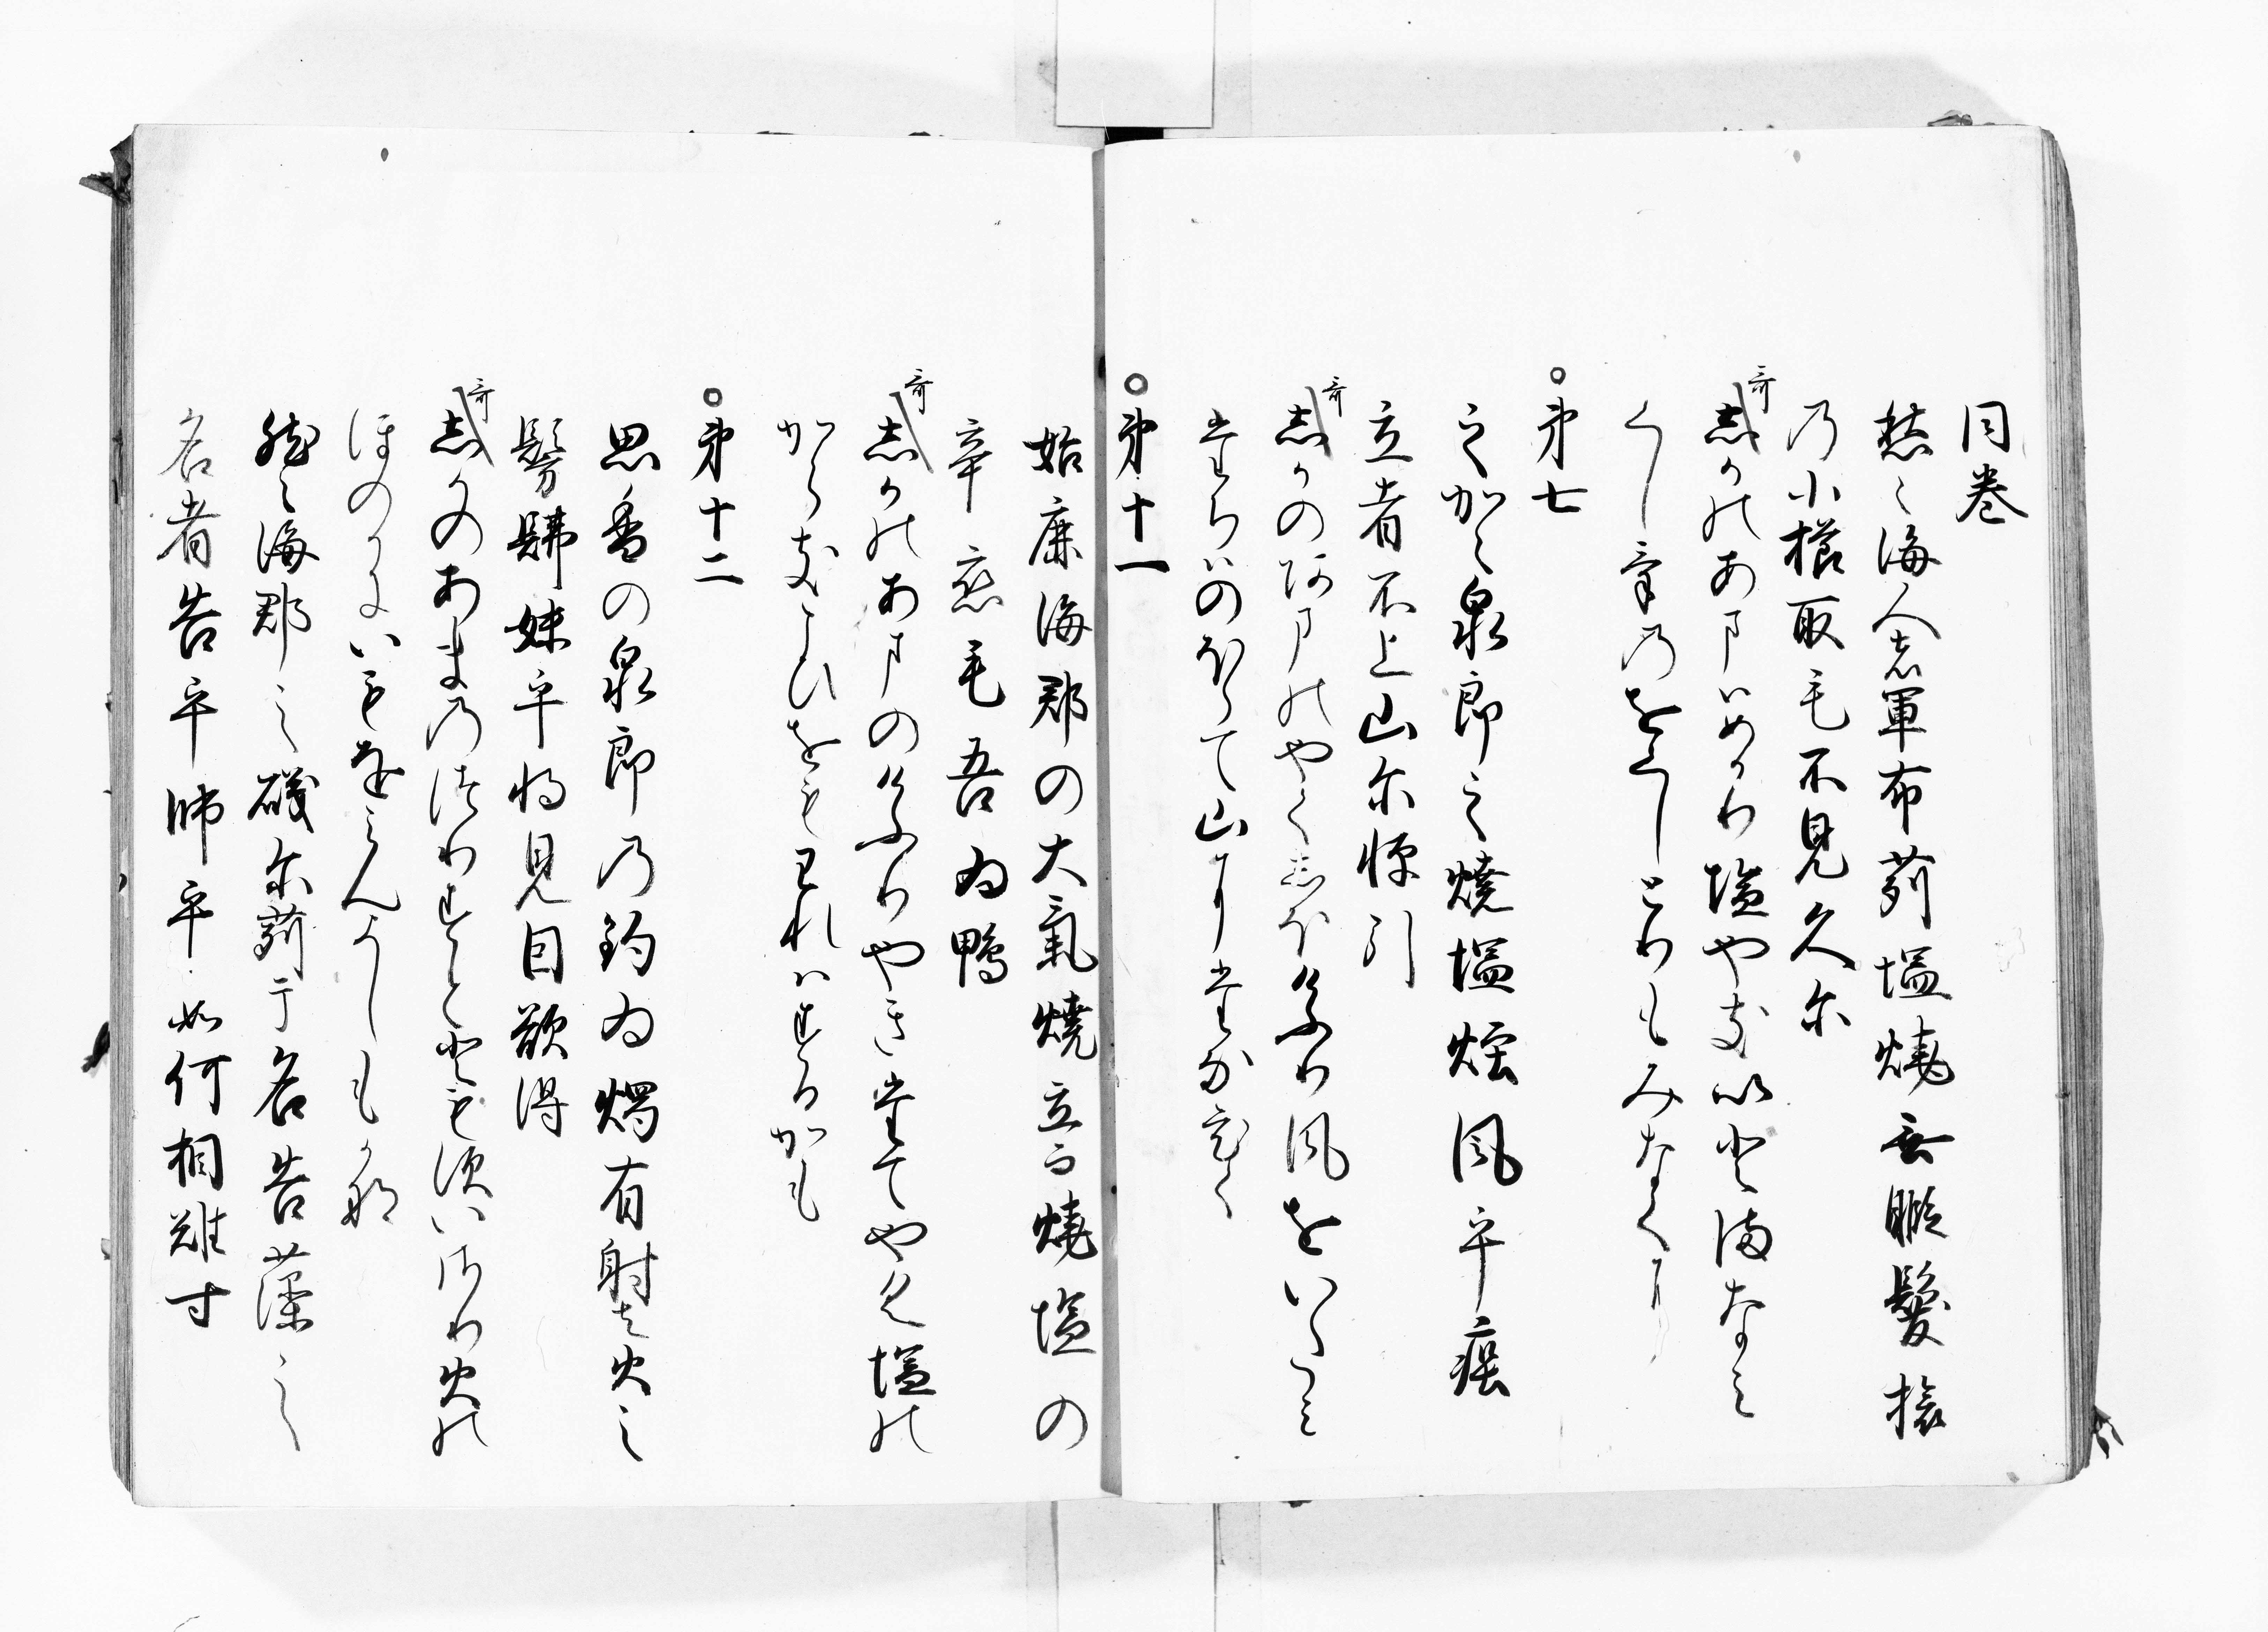 同巻
然之海人者軍布苅塩焼無暇髪梳
乃小櫛取毛不見久尓
哥
志かのあまはめかり塩やきいとまなみ
くしけのをくしとりもみなくに
○第七
之加之泉郎之焼塩煙風乎疾
立者不上山尓棚引
哥
志かのあまのやくしほけふり風をいたみ
たちはのほらて山にたなひく
○第十一
始廉海郡の大氣焼立而焼塩の
辛恋毛吾為鴨
哥
志かのあまのけふりやきたてやく塩の
からきこひをもわれはするかも
○第十二
思香の泉郎乃釣為燭有射去火之
髣髴妹乎将見因欲得
哥
志かのあまのつりすとともすいさり火の
ほのかにいもをみんよしもかな
然之海郡之磯尓苅干名告藻之
名者告乎師乎如何相難寸